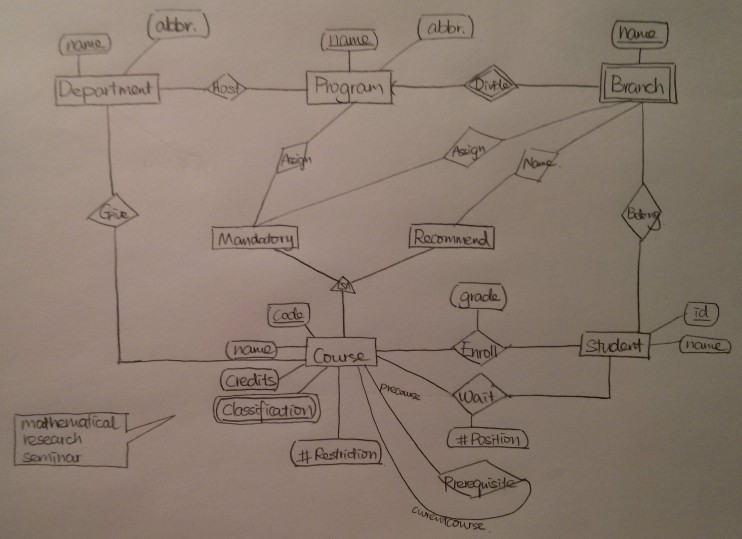 name
(abbr.)
name
(abbr.)
name
Department
Host
Program
Divide
Branch
Assign
Assign
Name
Give
Belong
Mandatory
Recommend
ISA
Code
grade
id
name
Course
Enroll
Student
name
Credits
precourse
Wait
Classification
#Position
mathematical
research
seminar
#Restriction
Prerequisite
currentcourse